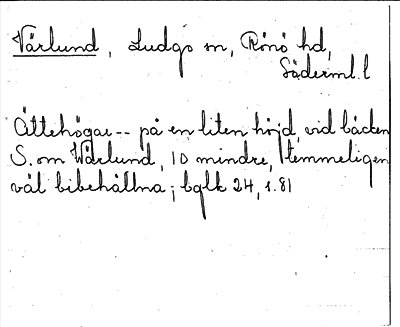 Vårlund, Ludgo sn, Rönö hd,
Söderml. l
Ättehögar -- på en liten höjd vid bäcken
S. om Wårlund, 10 mindre, temmeligen
väl bibehållna; bglk 24, 1.81